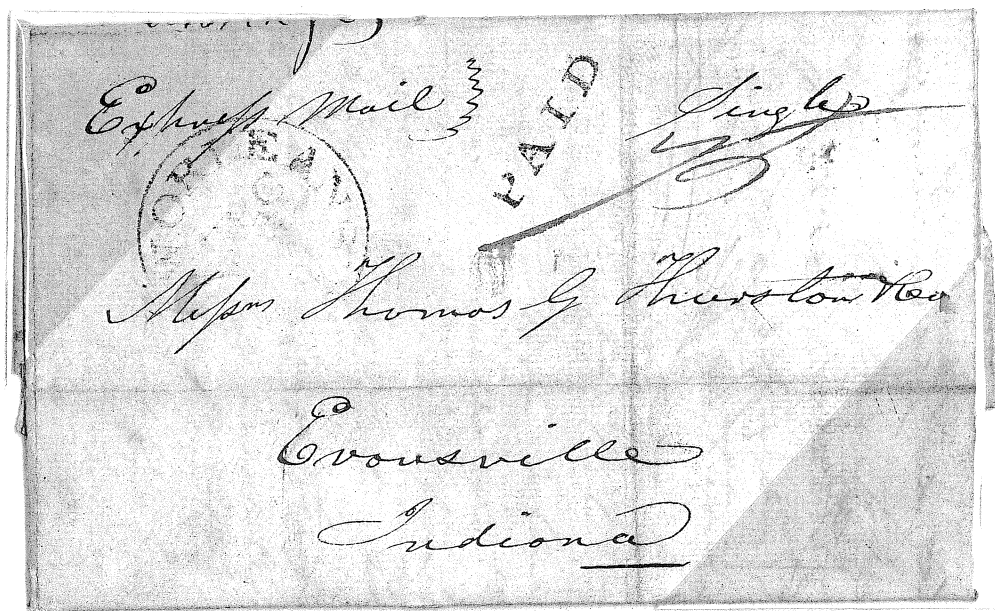 Express Mail
PAID
Single
Messrs Thomas G Thurston & Co
Evansville
Indiana